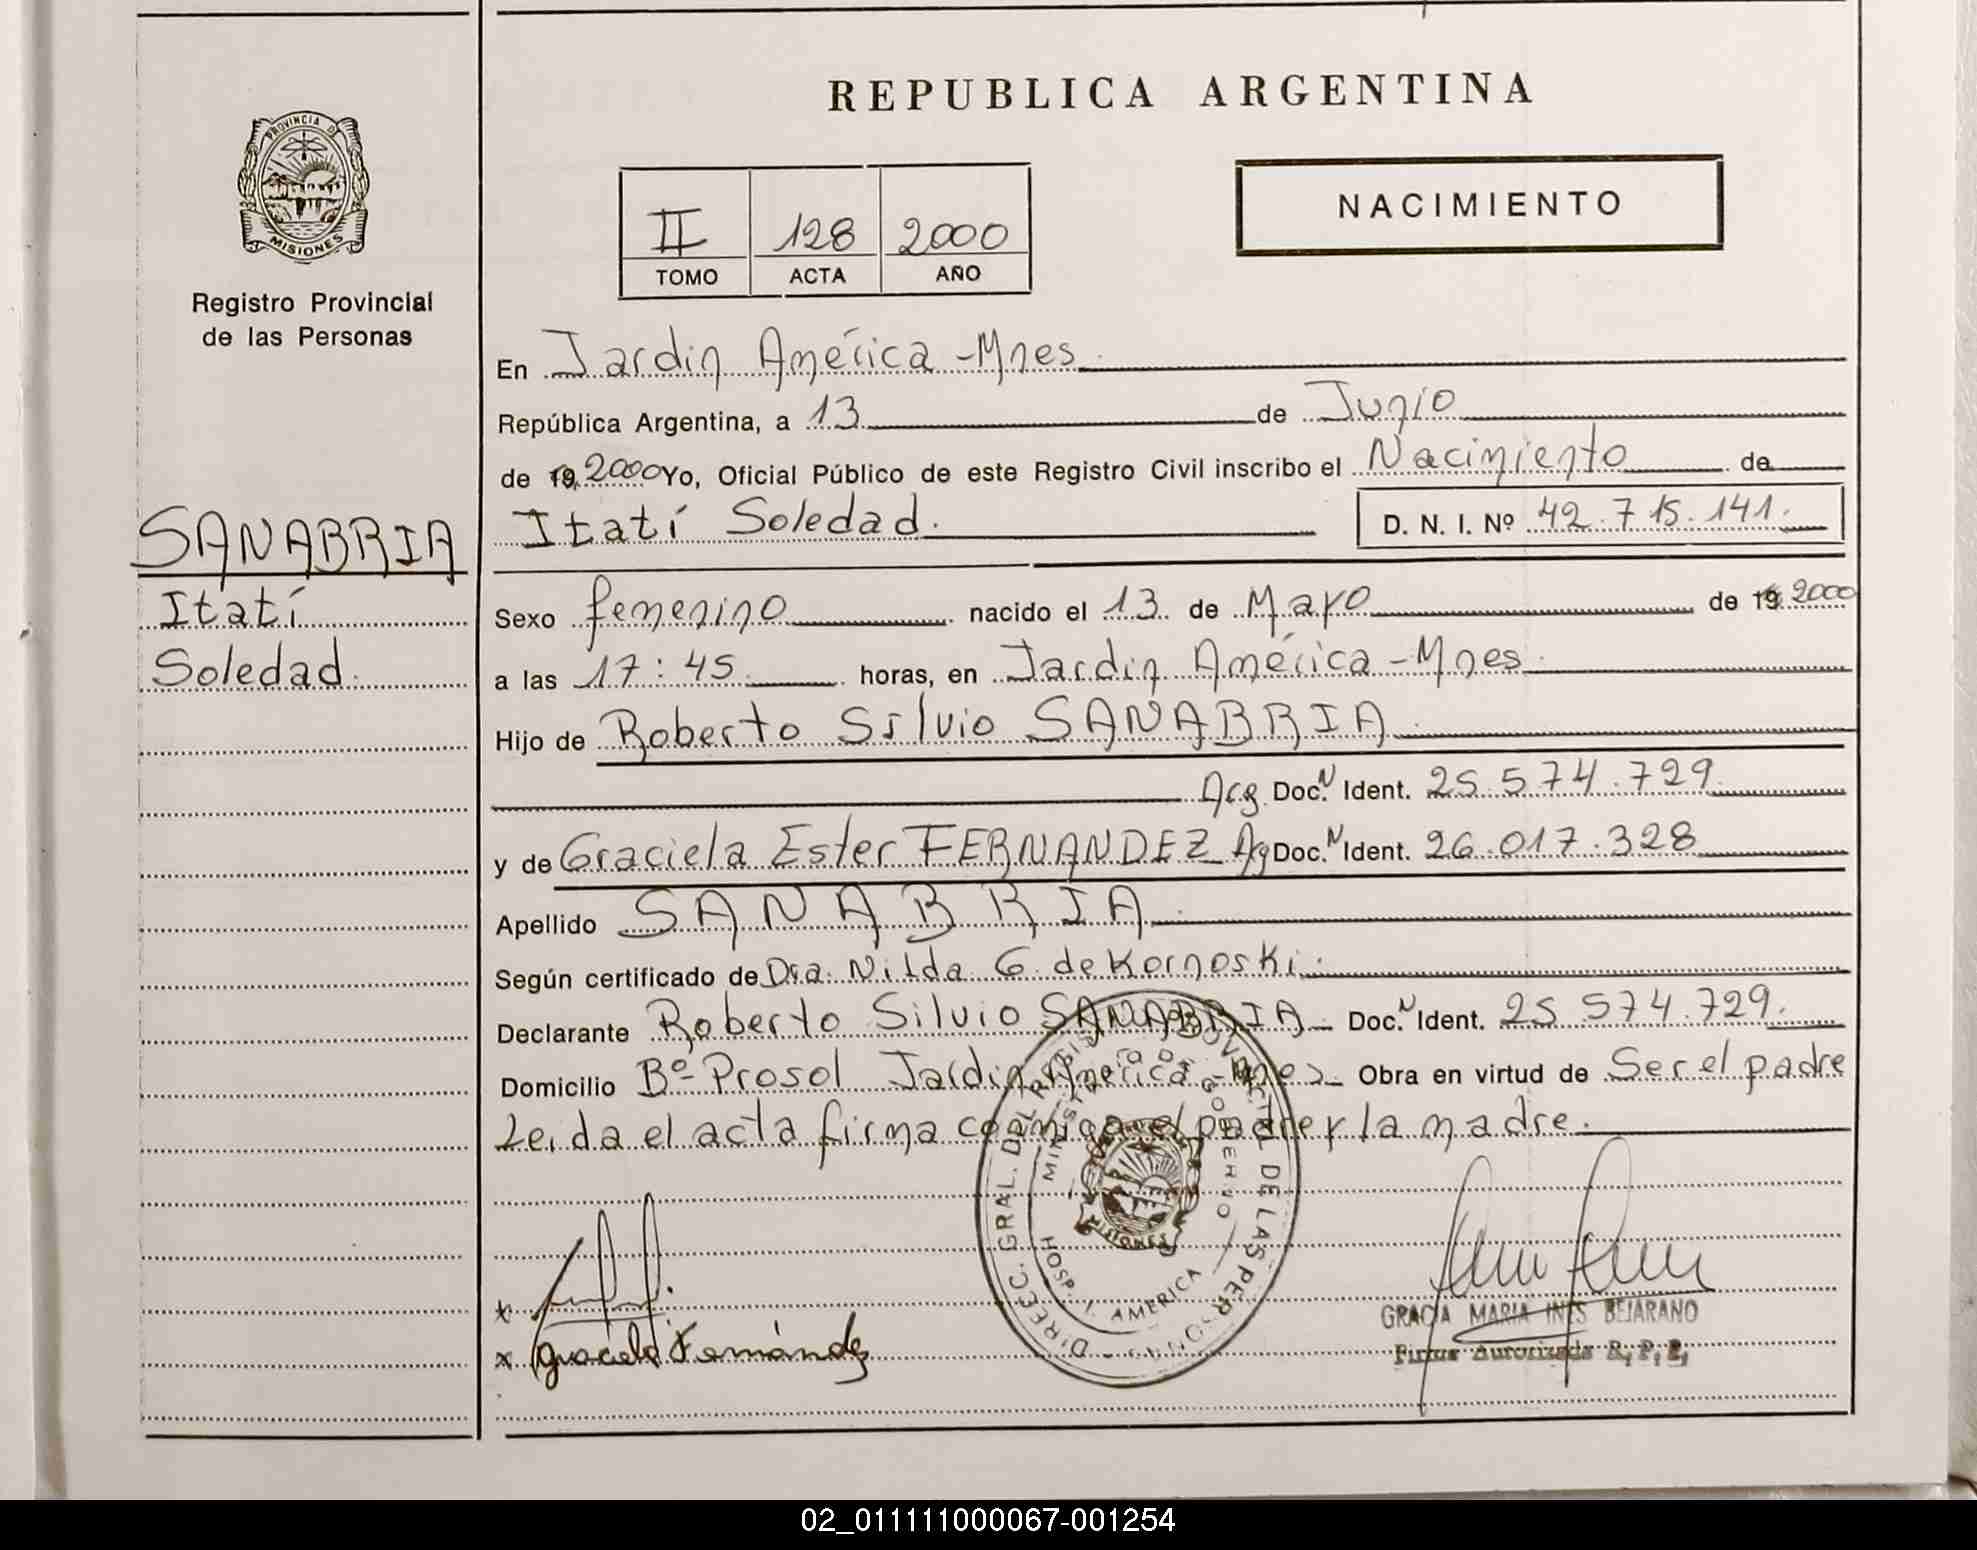 REPUBLICA ARGENTINA
PROVINCIA DE
MISIONES
Registro Provincial
de las Personas
II 128 2000
TOMO ACTA AÑO
NACIMIENTO
En Jardin América - Mnes.
República Argentina, a 13 de Junio
de 19 2000 Yo, Oficial Público de este Registro Civil inscribo el Nacimiento de
SANABRIA
Itatí
Soledad.
Itatí Soledad.
D. N. I. Nº 42.715.141.
Sexo femenino nacido el 13 de Mayo de 19 2000
a las 17:45 horas, en Jardin América - Mnes.
Hijo de Roberto Silvio SANABRIA
Arg. Doc. N Ident. 25.574.729
y de Graciela Ester FERNANDEZ Ag Doc. N Ident. 26.017.328
Apellido SANABRIA
Según certificado de Dra. Nilda G. de Kornoski.
Declarante Roberto Silvio SANABRIA Doc. N Ident. 25 574.729.
Domicilio Bº Prosol Jardin América - Mnes Obra en virtud de Ser el padre
Leida el acta firma conmigo el padre y la madre.
DIRECC. GRAL. DEL REGISTRO PROVINCIAL DE LAS PERSONAS
MINISTERIO DE GOBIERNO
MISIONES
HOSP. J. AMERICA
x
x Graciela Fernández
GRACIA MARIA INES BEJARANO
Firma Autorizada R. P. P.
02_011111000067-001254